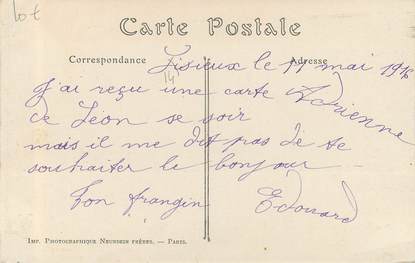 lot
Carte Postale
Correspondance
Adresse
Lisieux le 11 mai 1916
J'ai reçu une carte Adrienne
de Léon se soir
mais il me dit pas de te
souhaiter le bonjour
Ton frangin Edouard
IMP. PHOTOGRAPHIQUE NEURDEIN FRÈRES. — PARIS.